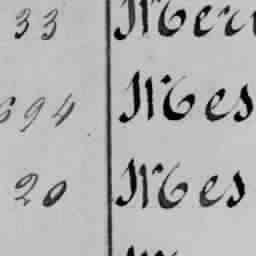 33 Mer
694 Mes
20 Mes